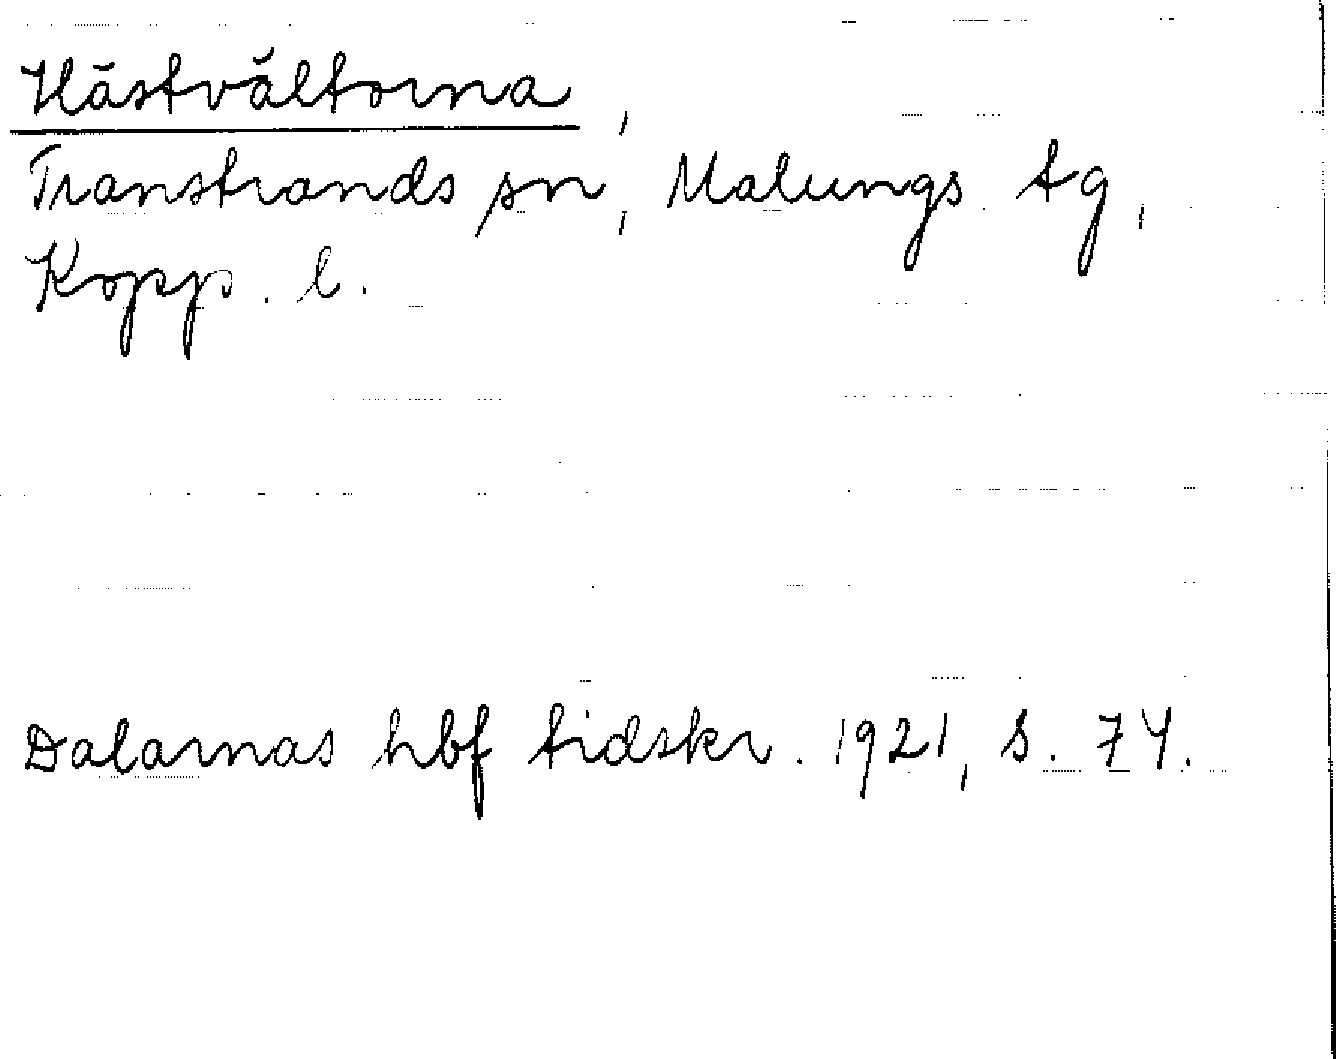 Hästvältorna,
Transtrands sn, Malungs tg,
Kopp. l.
Dalarnas hbf tidskr. 1921, s. 74.